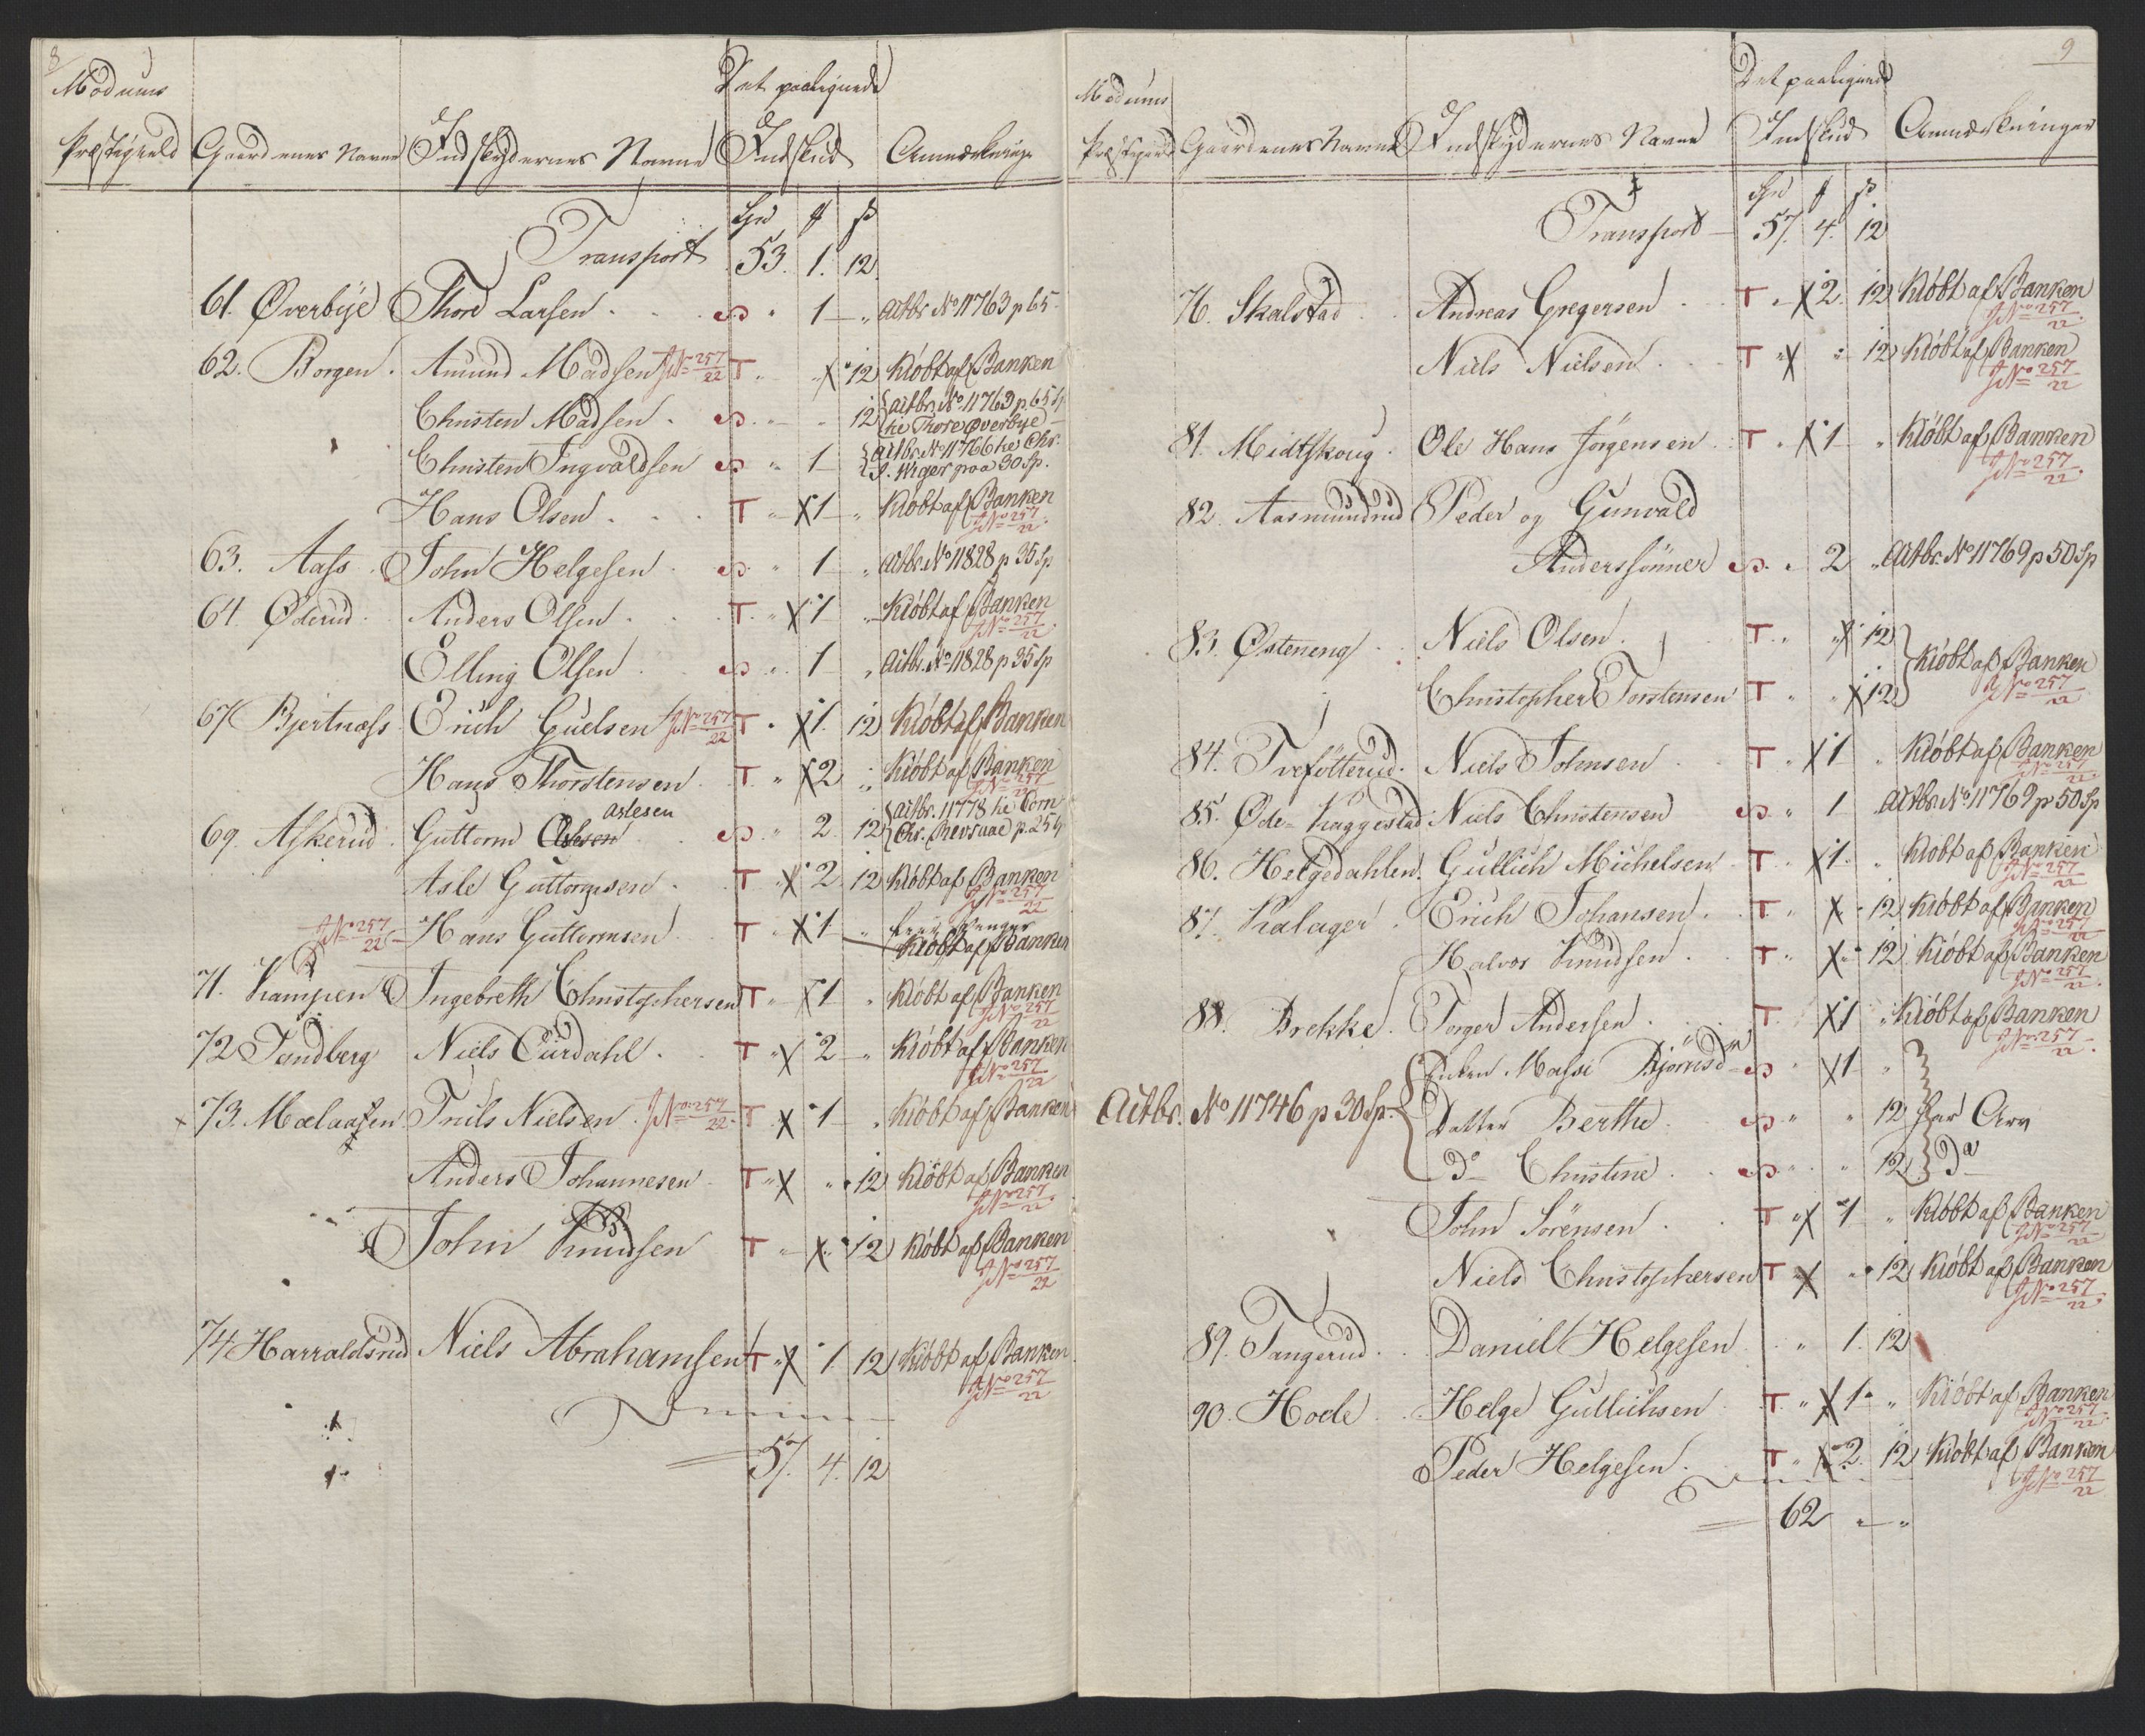 8
Modums
Præstegield Gaardenes Navne Indskydernes Navne Det paalignede Indskud Anmærkninger
Transport 53. 1. 12
61. Øverbÿe Thore Larsen . . . " 1 — " Actbr. No 11763 p 65
62. Borgen . Amund Madsen JNo 257/22 T " " X 12 Kiøbt af Banken
Christen Madsen . " " 12 {Actbr. No 11763 p. 65 Sp
he Thore Øverbye
Christen Ingvaldsen " 1 — {Actbr. No 11766 he Chr.
J. Wiger paa 30 Sp.
Hans Olsen . . . T " X 1 — " Kiøbt af Banken
JNo 257/22
63. Aass . John Helgesen . " 1 " Actbr. No 11828 p 35 Sp
64. Øderud . Anders Olsen . . . T. " X 1 — " Kiøbt af Banken
JNo 257/22
Elling Olsen . " 1 " Actbr. No 11828 p 35 Sp
67 Bjertnæss Erich Guelsen JNo 257/22 T " X 1. 12 Kiøbt af Banken
Hans Thorstensen . T. " X 2 " Kiøbt af Banken
JNo 257/22
aslesen
69. Askerud . Guttorm . " 2 12 {Actbr. 11778 he Corn
Chr. p. 25 Sp
Asle Guttormsen . T " X 2 12 Kiøbt af Banken
JNo 257/22
JNo 257/22 Hans Guttormsen . T " X 1 "
Kiøbt af Banken
71. Kampen Ingebreth Christophersen T " X 1 " Kiøbt af Banken
JNo 257/22
72 Tandberg Niels Curdahl . . T " X 2 — " Kiøbt af Banken
JNo 257/22
73. Mælaasen Truls Nielsen . JNo 257/22 T X 1 — " Kiøbt af Banken
Anders Johannesen T " X " 12 Kiøbt af Banken
JNo 257/22
John Knudsen T " X " 12 Kiøbt af Banken
JNo 257/22
74 Harraldsrud Niels Abrahamsen T " X 1. 12 Kiøbt af Banken
JNo 257/22
57. 4. 12
9
Modums
Præstegield Gaardenes Navne Indskydernes Navne Det paalignede Indskud Anmærkninger
Transport — 57. 4. 12
76. Skalstad . . Andreas Gregersen . . T " X 2. 12 Kiøbt af Banken
JNo 257/22
Niels Nielsen . . . T " X " 12 Kiøbt af Banken
JNo 257/22
81. Midtskoug . Ole Hans Jørgensen . T " X 1 — " Kiøbt af Banken
JNo 257/22
82. Aasmundrud Peder og Gunvald
Anderssønner . " 2 " Actbr. No 11769 p 50 Sp
83. Østeneng . . Niels Olsen . T " " X 12 }
Kiøbt af Banken
Christopher Torstensen T " " X 12 } JNo 257/22
84. Tvefötterud . Niels Johnsen . T " X 1 " Kiøbt af Banken
JNo 257/22
85. Øde- Kaggestad Niels Christensen " 1 — Actbr. No 11769 p 50 Sp
86. Helgedahlen . Gullich Michelsen T " X 1. " Kiøbt af Banken
JNo 257/22
87. Kalager . Erich Johansen . T " X " 12 Kiøbt af Banken
JNo 257/22
Halvor Knudsen . T " X " 12 Kiøbt af Banken
JNo 257/22
88. Brekke . Torger Andersen . . T X 1 " Kiøbt af Banken
JNo 257/22
{Enken Massi Bjørnsd " X 1 — "
Actbr. No 11746 p 30 Sp. Datter Berthe . . " " 12 har Arv
Do Christine . . " " 12 Do
John Sörensen . . T " X 1 " Kiøbt af Banken
JNo 257/22
Niels Christophersen T X " 12 Kiøbt af Banken
JNo 257/22
89. Tangerud . . Daniel Helgesen . . " 1. 12
90. Hoele . . Helge Gullichsen T " X 1 " Kiøbt af Banken
JNo 257/22
Peder Helgesen . T " X 2. 12 Kiøbt af Banken
JNo 257/22
62 " — "